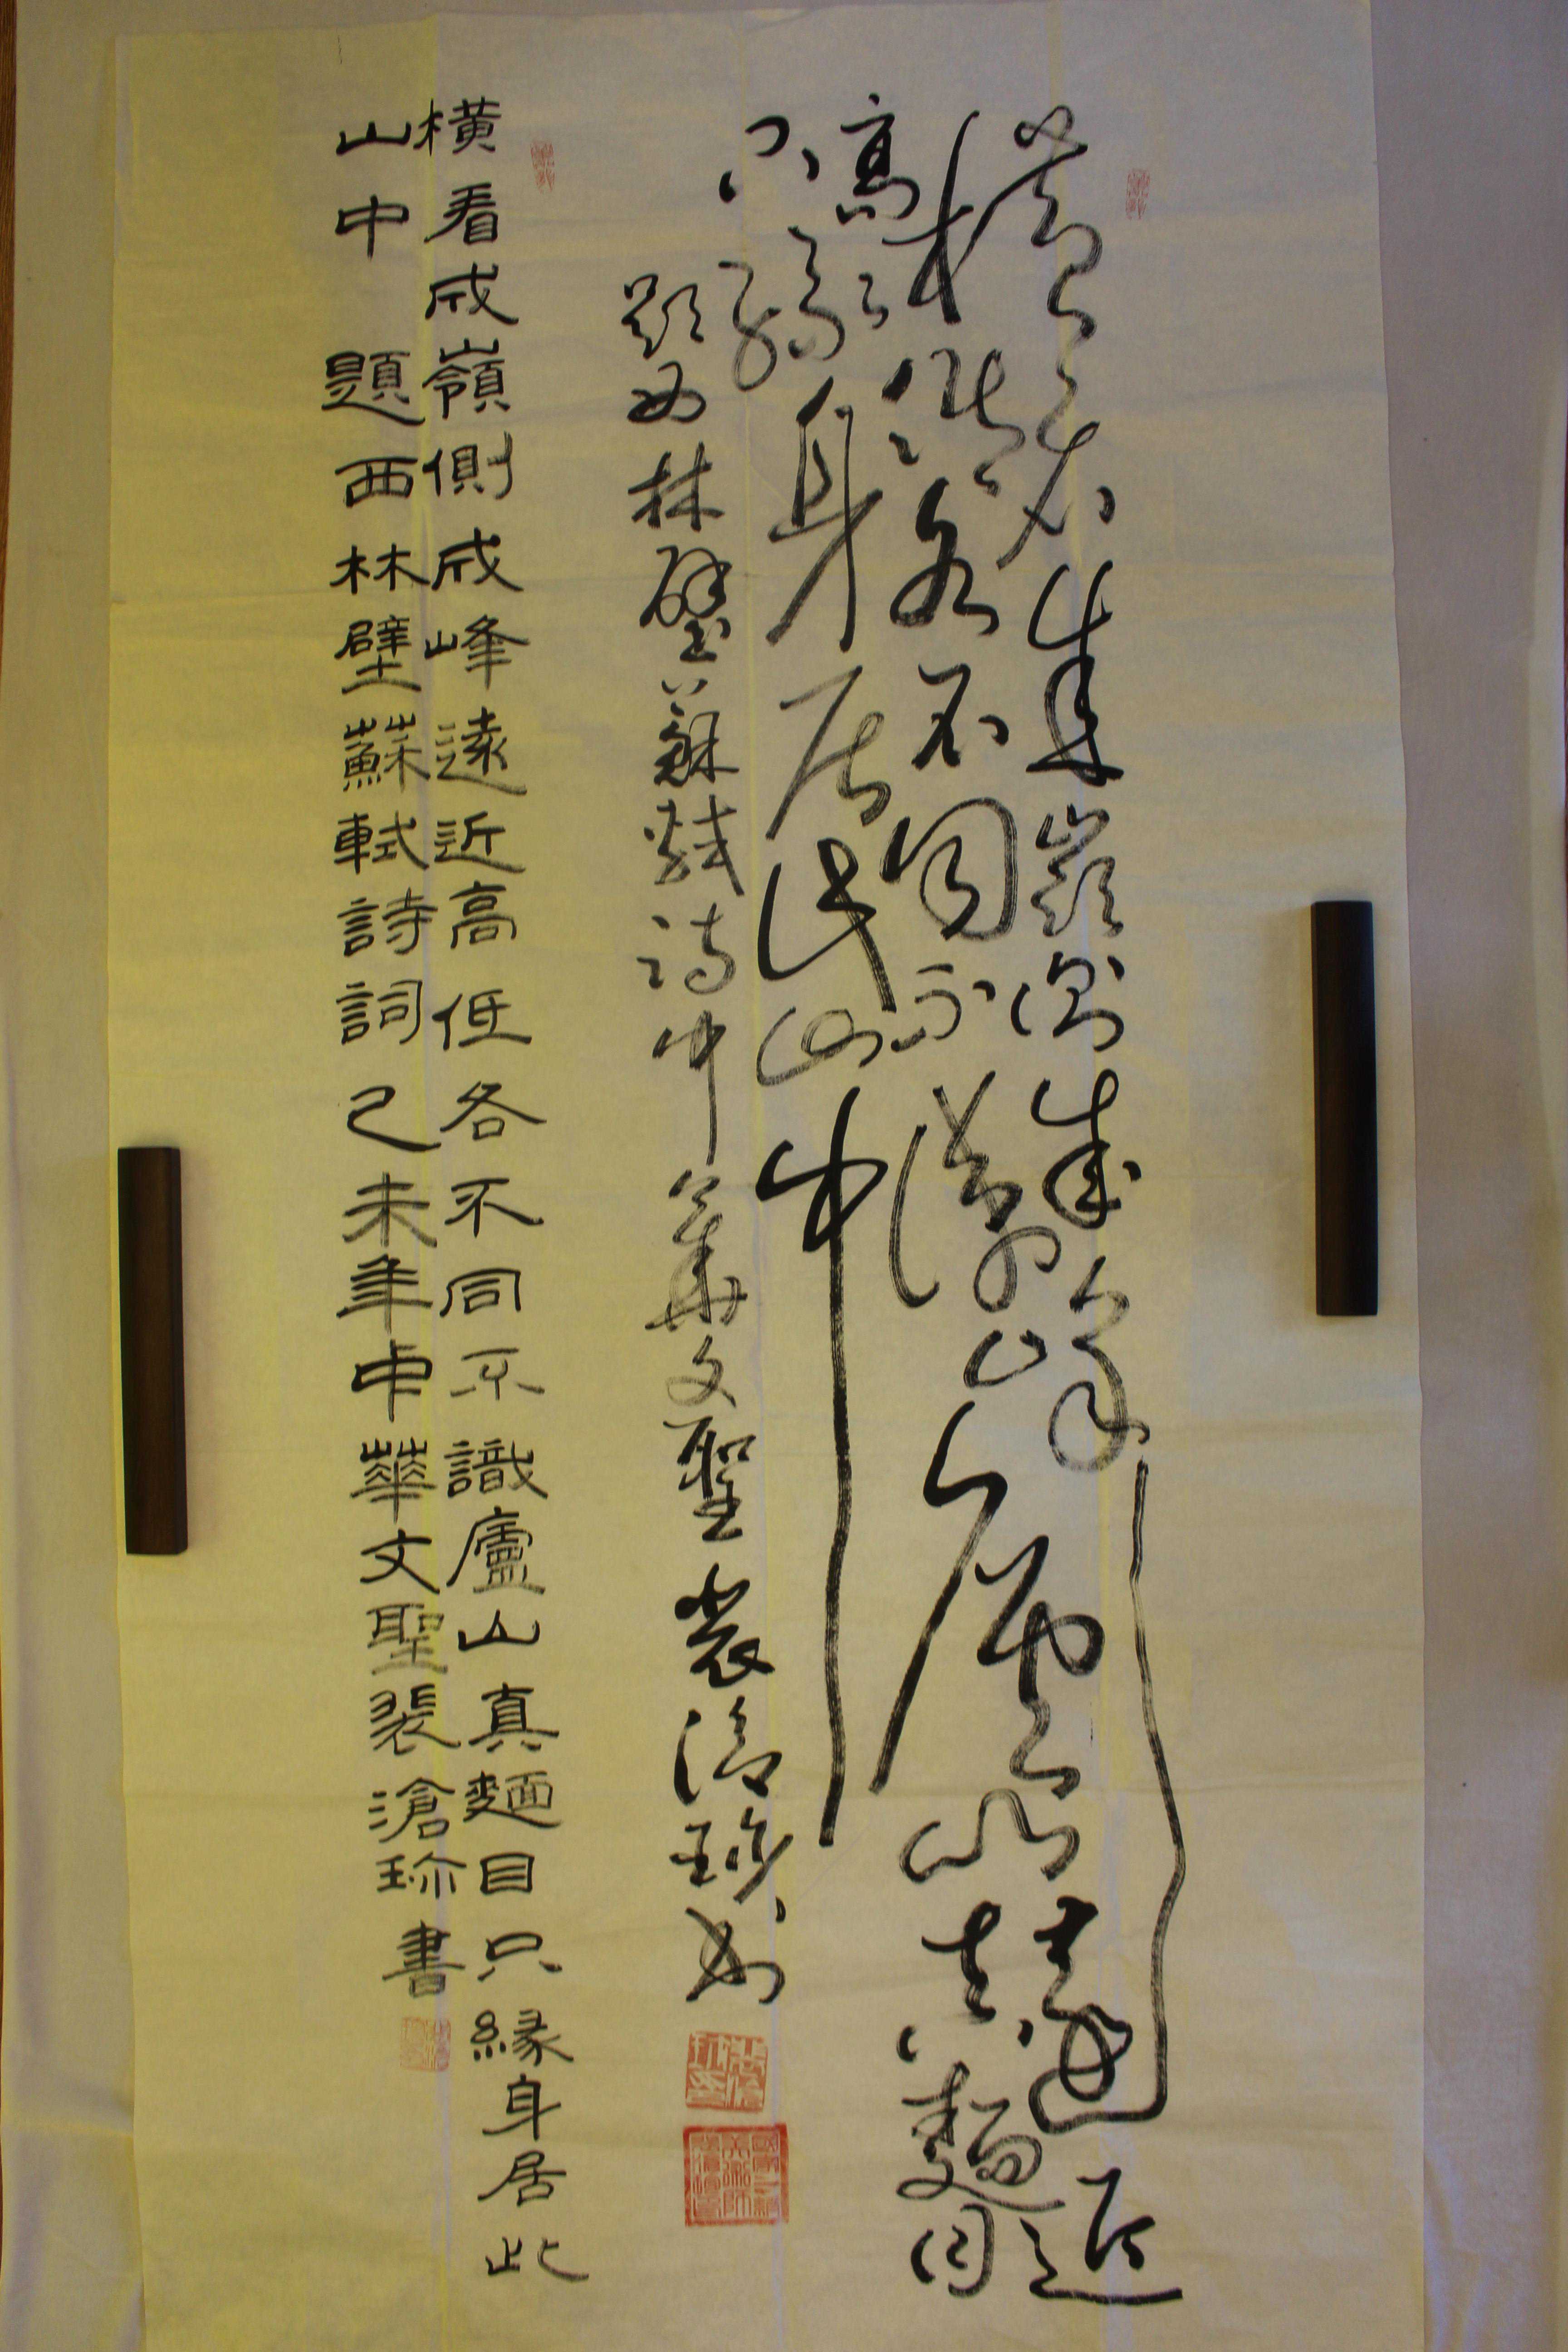 橫看成嶺側成峰遠近
高低各不同不識廬山真麵目
只緣身居此山中
題西林壁蘇軾詩中華文聖裴滄珎書
橫看成嶺側成峰遠近高低各不同不識廬山真麵目只緣身居此
山中 題西林壁蘇軾詩詞己未年中華文聖裴滄珎書